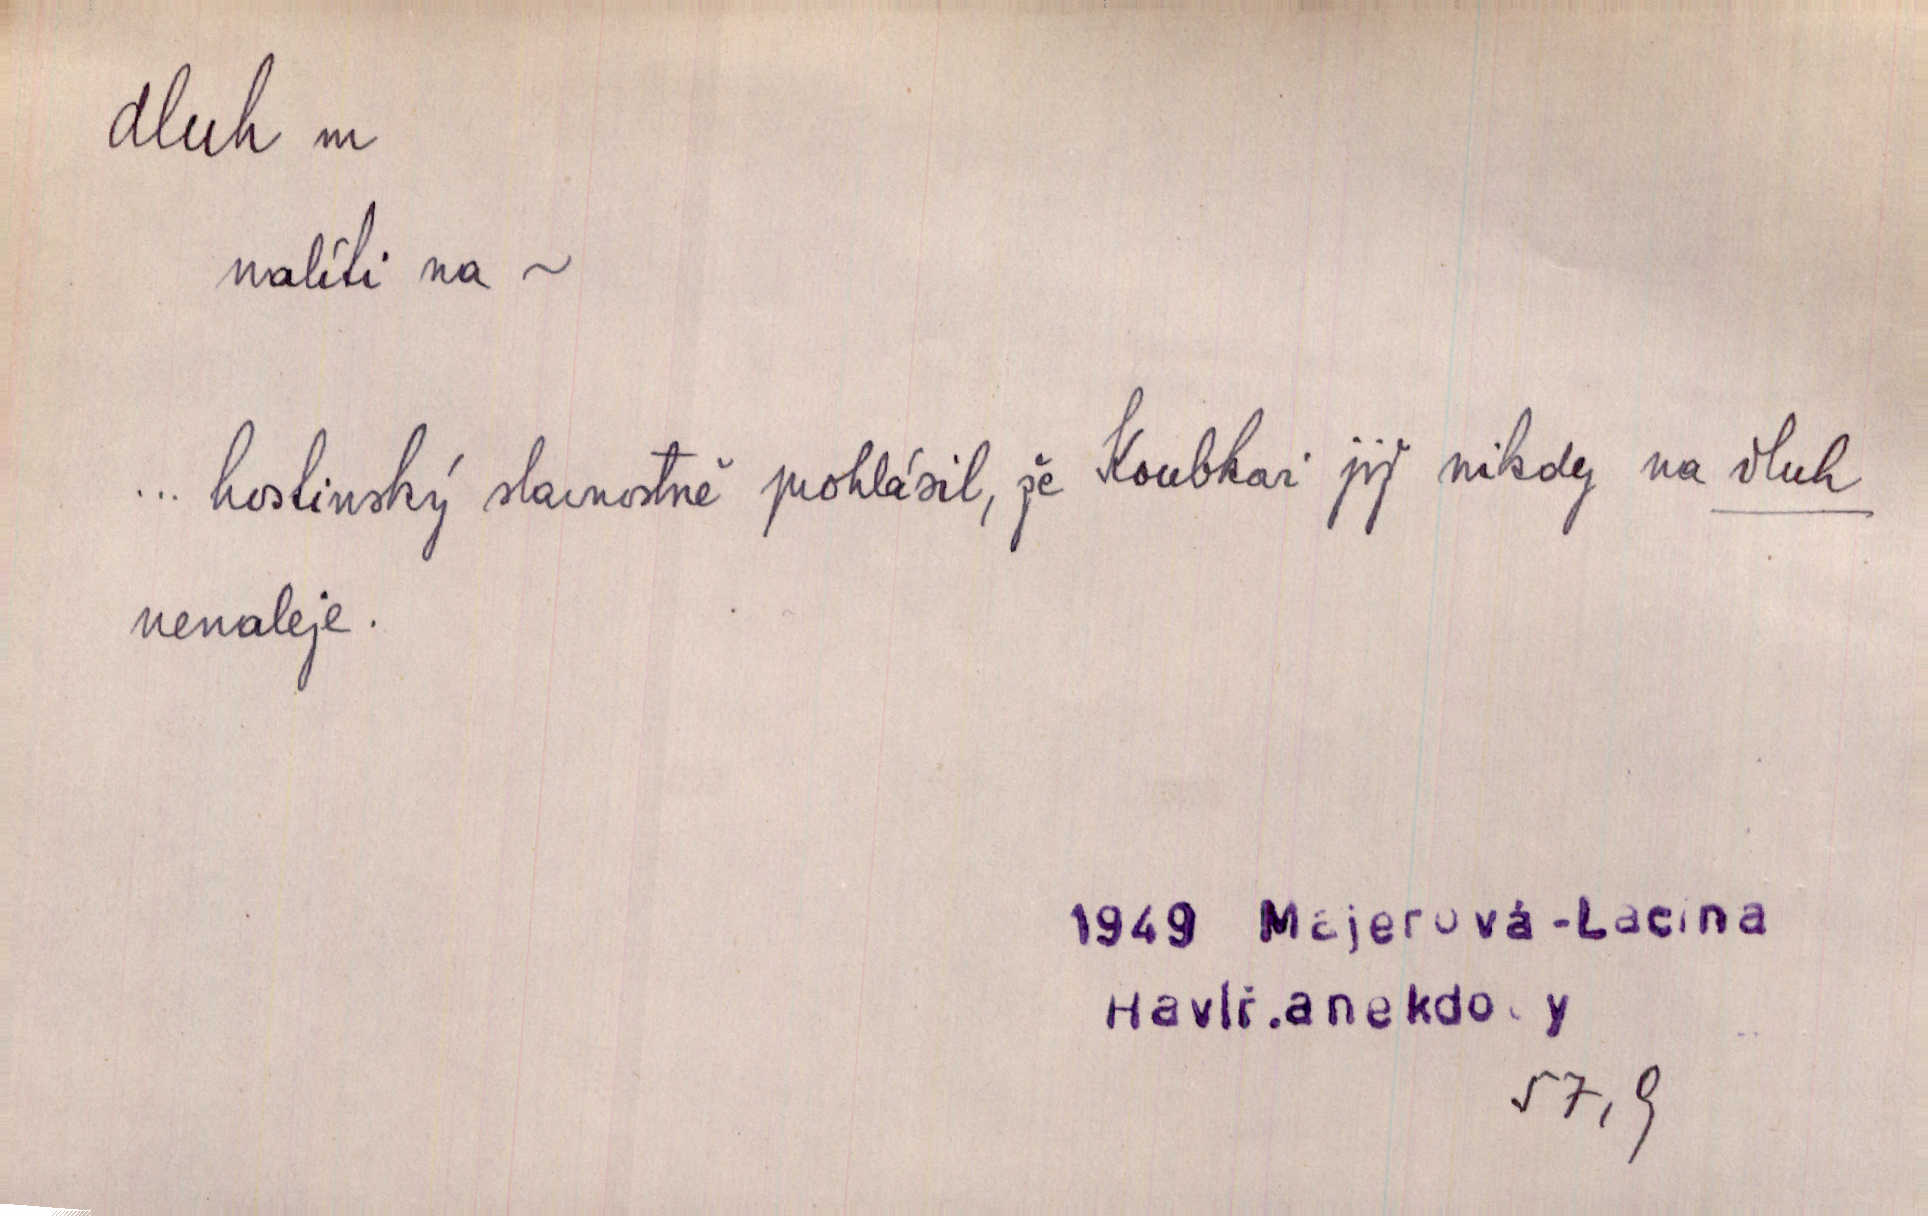 dluh m
nalíti na ~
... hostinský slavnostně prohlásil, že Koubkovi již nikdy na dluh
nenaleje.
1949 Majerová-Lacina
Havlíč.anekdoty
57,9